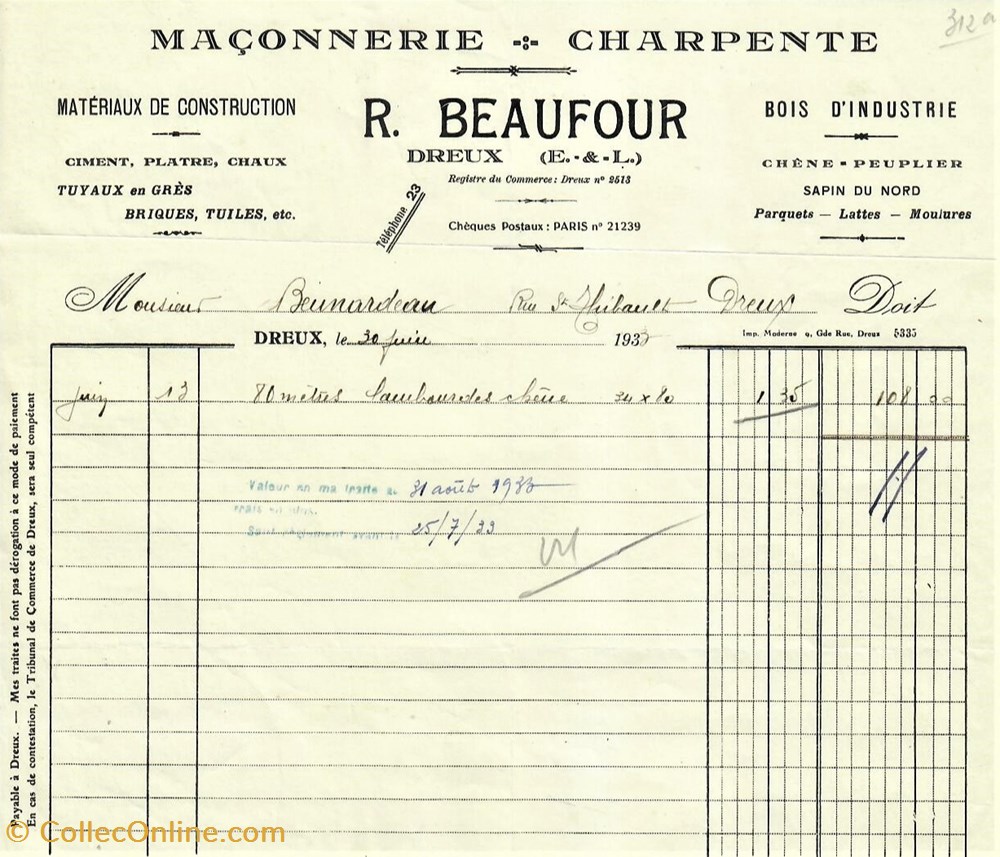 312a
MAÇONNERIE -:- CHARPENTE
MATÉRIAUX DE CONSTRUCTION
CIMENT, PLATRE, CHAUX
TUYAUX en GRÈS
BRIQUES, TUILES, etc.
R. BEAUFOUR
DREUX (E.-&-L.)
Registre du Commerce: Dreux nº 2513
Téléphone 23
Chèques Postaux : PARIS nº 21239
BOIS D'INDUSTRIE
CHÊNE - PEUPLIER
SAPIN DU NORD
Parquets — Lattes — Moulures
Monsieur Beunardeau Rue St Thibault Dreux Doit
DREUX, le 30 juin 1933
Imp. Moderne 9, Gde Rue, Dreux 5335
juin 13 80 mètres Lambourdes chêne 34 x 80 1 35 108 00
Valeur en ma traite au 31 août 1933
frais en plus.
Sauf règlement avant le 25/7/33
Payable à Dreux. — Mes traites ne font pas dérogation à ce mode de paiement
En cas de contestation, le Tribunal de Commerce de Dreux, sera seul compétent
© CollecOnline.com